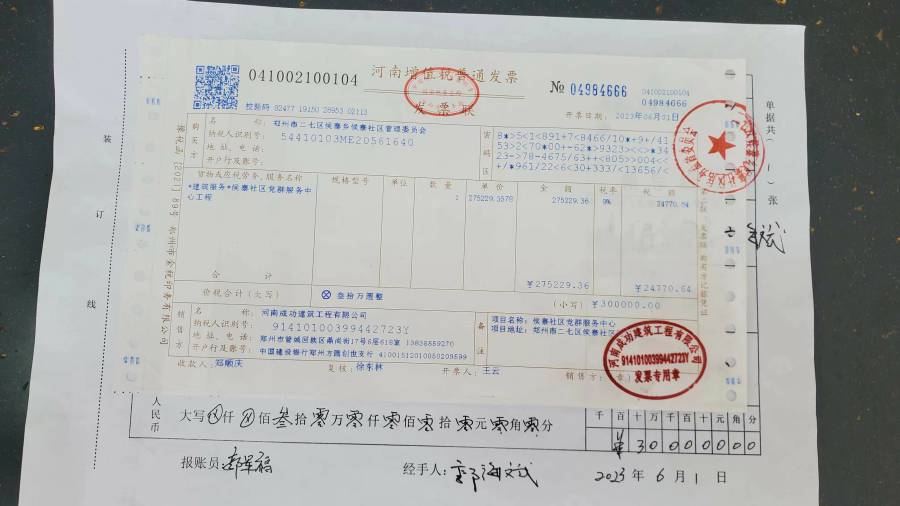 041002100104
河南增值税普通发票
发票联
№ 04984666
041002100104
04984666
校验码 92477 19150 28953 02113
开票日期：2023年06月01日
单据共（一）张
购买方
名称：郑州市二七区侯寨乡侯寨社区管理委员会
纳税人识别号：54410103ME20561640
地址、电话：
开户行及账号：
密码区
8*>5<1<891+7<8466/10*+9+/41
53>2<70*00+-62*>9323><<>*34
23->78-4675/63++<805>>004<<
+/*961/22<6*30+333/<13656/<
货物或应税劳务、服务名称
规格型号
单位
数量
单价
金额
税率
税额
*建筑服务*侯寨社区党群服务中
心工程
1
275229.3578
275229.36
9%
24770.64
合计
¥275229.36
¥24770.64
价税合计（大写）
ⓧ 叁拾万圆整
（小写）¥300000.00
销售方
名称：河南成功建筑工程有限公司
纳税人识别号：91410100399442723Y
地址、电话：郑州市管城回族区鼎尚街17号6层618室 13838559299
开户行及账号：中国建设银行郑州方圆创世支行 41001512010050209599
备注
项目名称：侯寨社区党群服务中心
项目地址：郑州市二七区侯寨社区
收款人：郑顺庆
复核：徐东林
开票人：王云
销售方：（章）
河南成功建筑工程有限公司
91410100399442723Y
发票专用章
装
订
线
人民币
大写ⓧ仟ⓧ佰叁拾零万零仟零佰零拾零元零角零分
千百十万千百十元角分
¥30000000
报账员：
经手人：
2023年6月1日